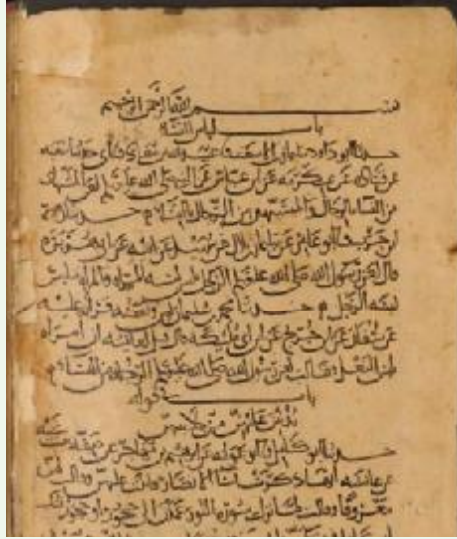 بسم الله الرحمن الرحيم
باب لباس النساء
حدثنا ابو داود عبيد الله بن معاذ نا ابي حدثنا شعبه
عن قتاده عن عكرمه عن ابن عباس عن النبي صلى الله عليه انه لعن المتشبهات
من النساء بالرجال والمتشبهين من الرجال بالنساء حدثنا زهير
ابن حرب نا ابو عامر عن سليمان بن بلال عن سهيل عن ابيه عن ابي هريره
قال لعن رسول الله صلى الله عليه الرجل يلبس لبسه المراه والمراه تلبس
لبسه الرجل حدثنا محمد بن سليمان لوين وبعضه قراه عليه
عن سفين عن ابن جريج عن ابن ابي مليكه قال قيل لعائشه ان امراه
تلبس النعل فقالت لعن رسول الله صلى الله عليه الرجله من النساء
باب قوله
يدنين عليهن من جلابيبهن
حدثنا ابو كامل نا ابو عوانه عن ابراهيم بن مهاجر عن صفيه بنت
عن عائشه انها ذكرت نساء الانصار فاثنت عليهن وقالت لهن
معروفا وقالت لما نزلت سوره النور عمدن الى حجور او حجوز